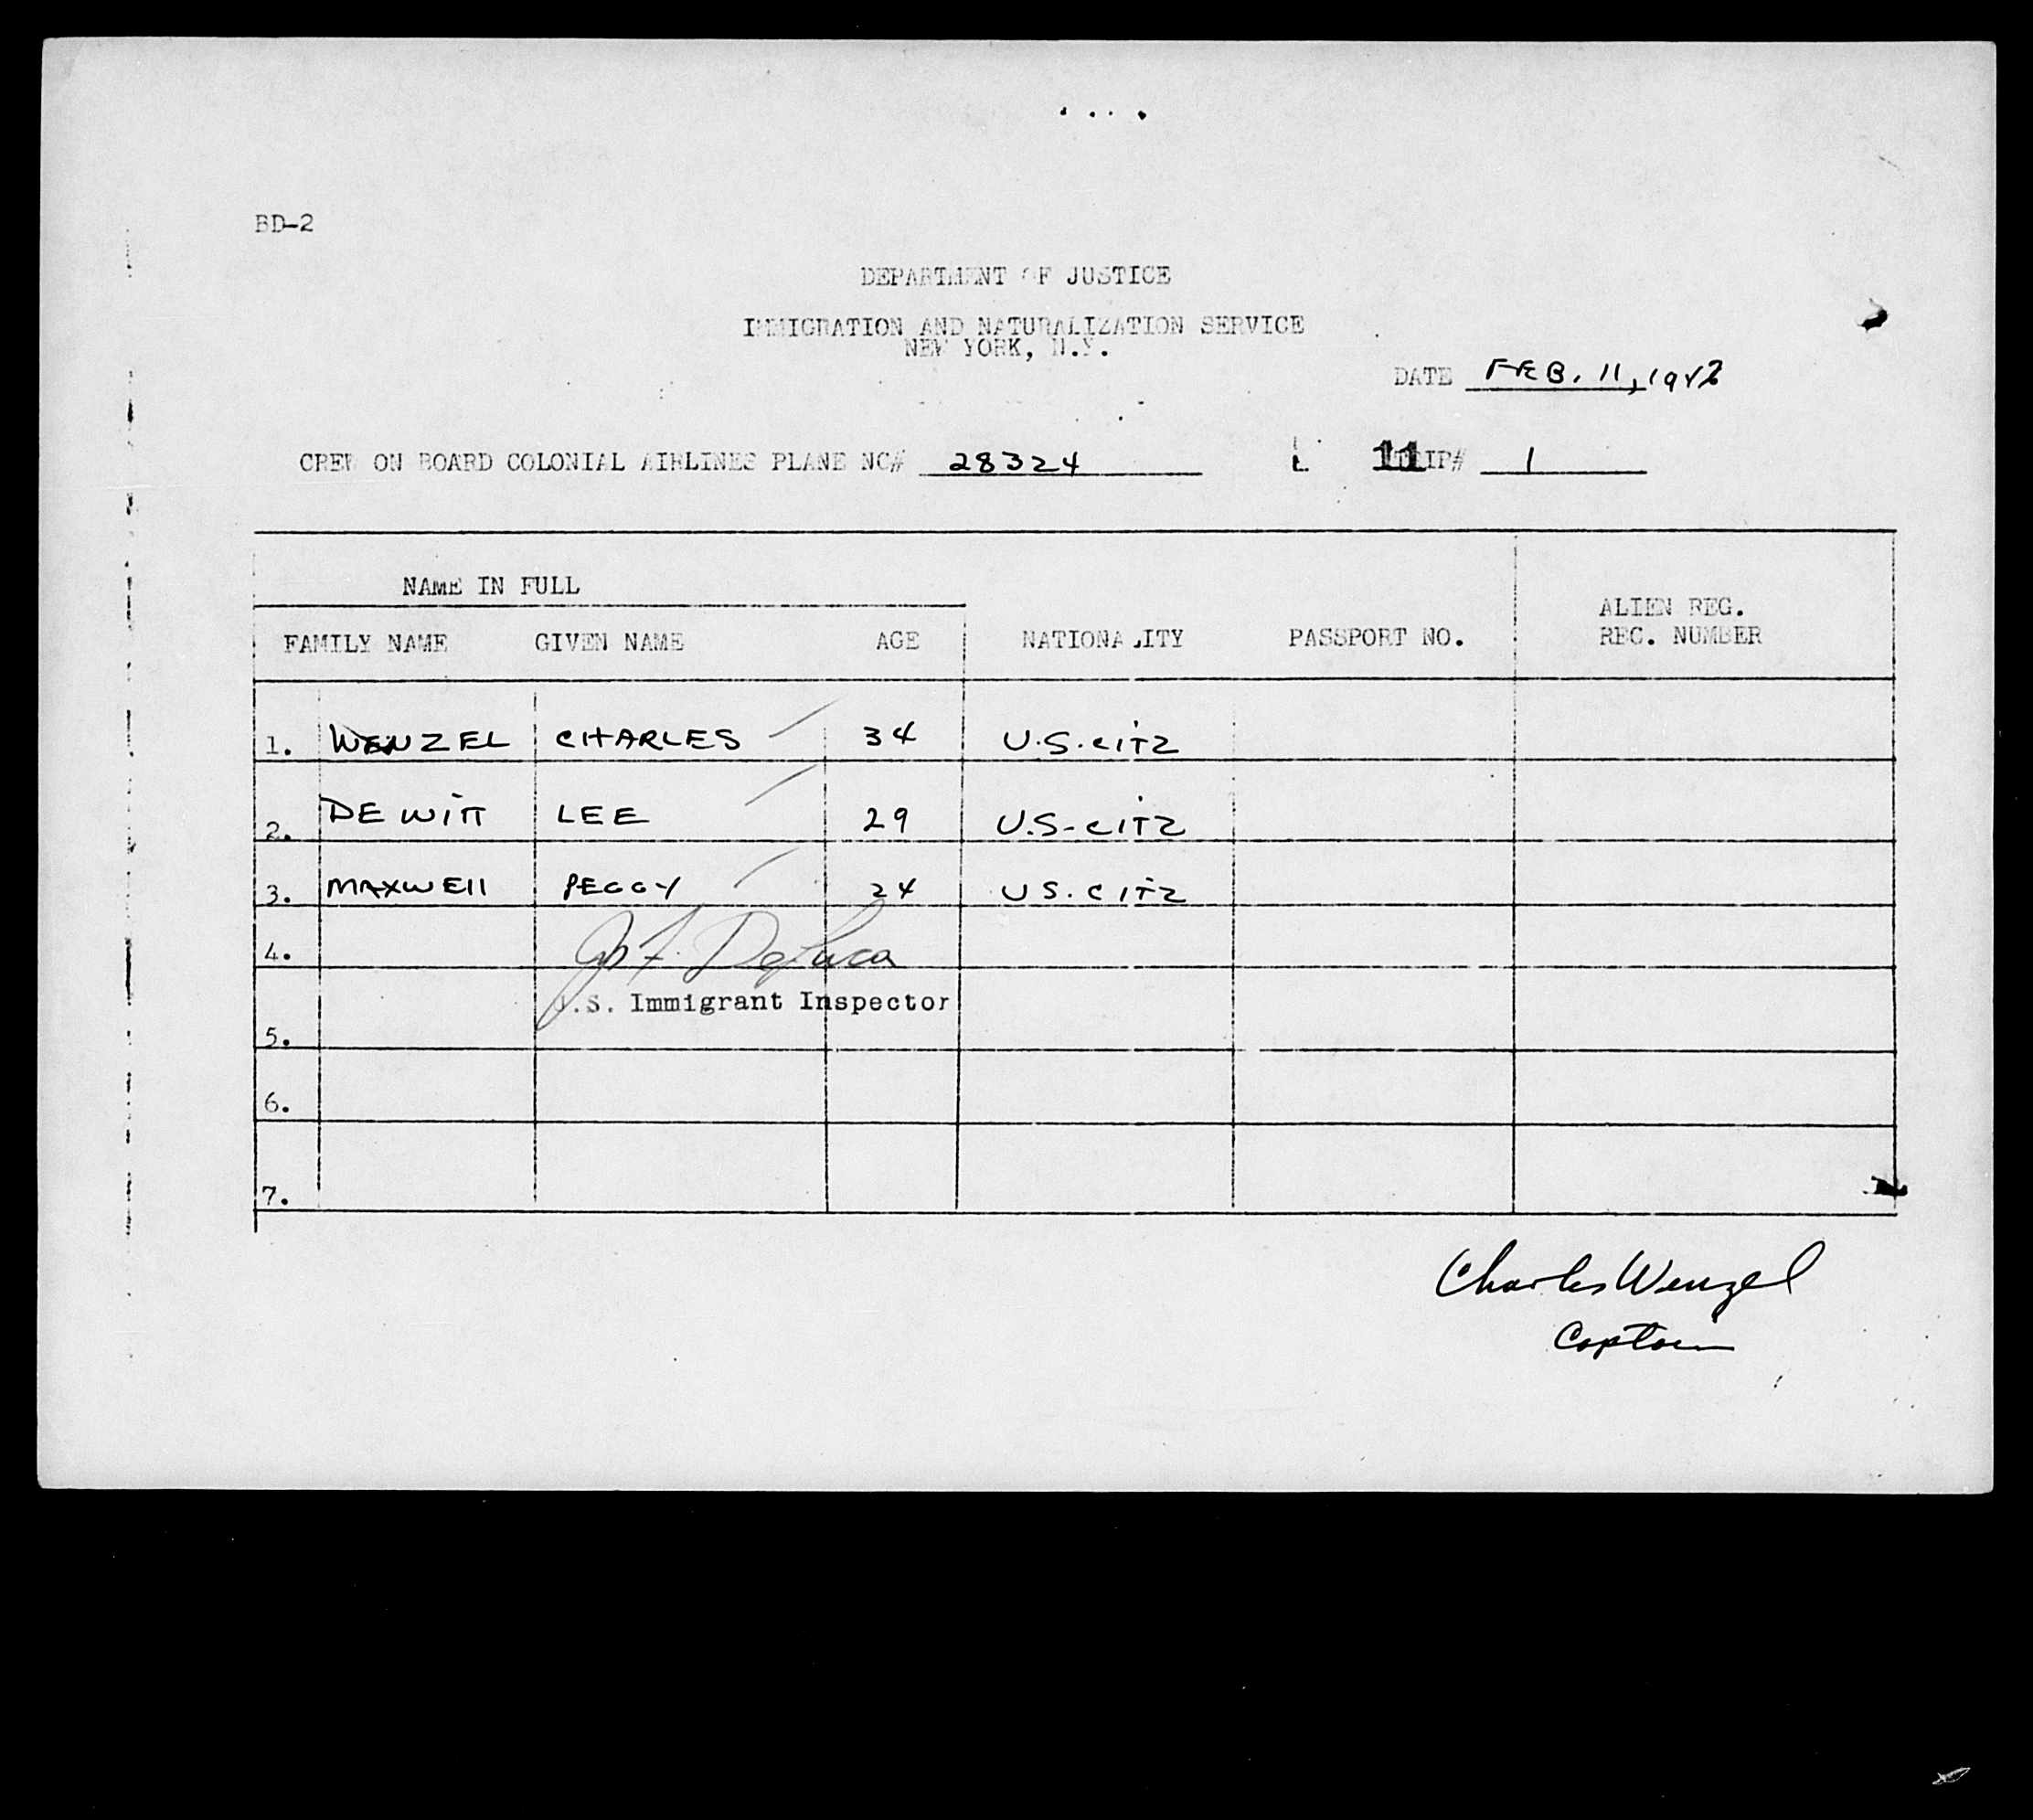 BD-2
DEPARTMENT OF JUSTICE
IMMIGRATION AND NATURALIZATION SERVICE
NEW YORK, N.Y.
DATE FEB. 11, 1942
CREW ON BOARD COLONIAL AIRLINES PLANE NC# 28324 11 TRIP# 1
NAME IN FULL
FAMILY NAME GIVEN NAME AGE NATIONALITY PASSPORT NO. ALIEN REG. REC. NUMBER
1. WENZEL CHARLES 34 U.S. CITZ
2. DE WITT LEE 29 U.S-CITZ
3. MAXWEll PEGGY 24 US. CITZ
4. DeLuca
U.S. Immigrant Inspector
5.
6.
7.
Charles Wenzel
Captain